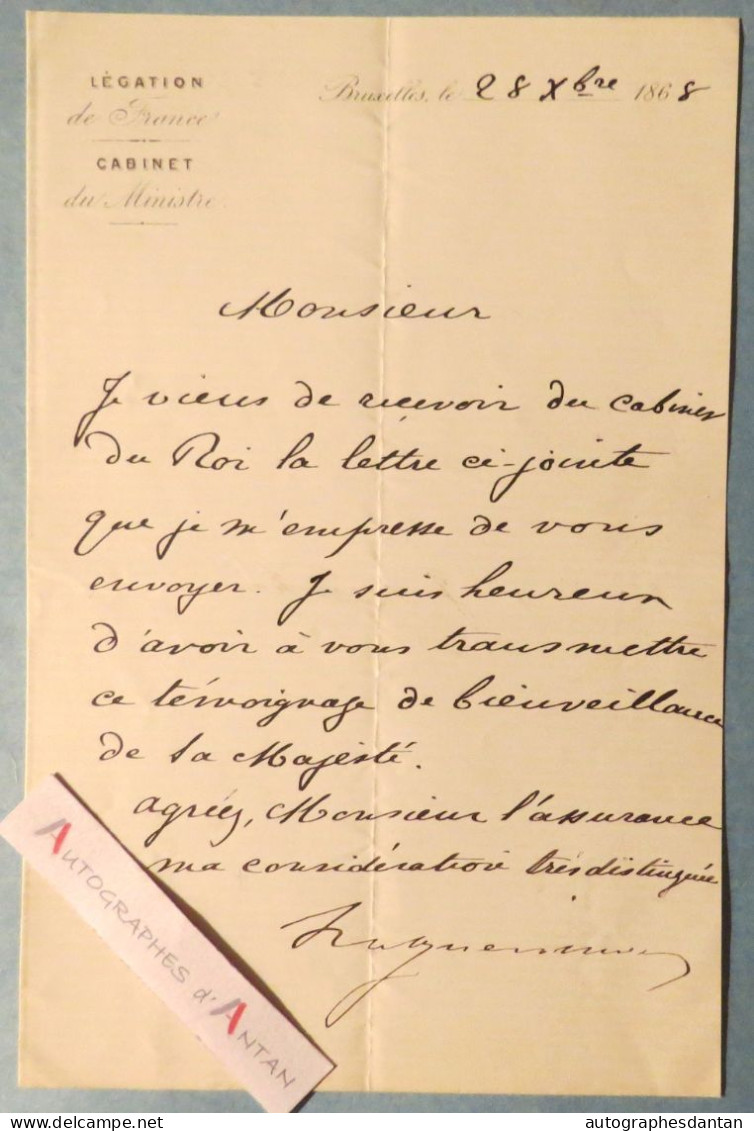 LÉGATION
de France
CABINET
du Ministre
Bruxelles, le 28 Xbre 1868
Monsieur
Je viens de recevoir du cabinet
du Roi la lettre ci-jointe
que je m'empresse de vous
envoyer. Je suis heureux
d'avoir à vous transmettre
ce témoignage de bienveillance
de Sa Majesté.
agréez, Monsieur l'assurance
ma considération très distinguée
AUTOGRAPHES d'ANTAN
autographesdantan